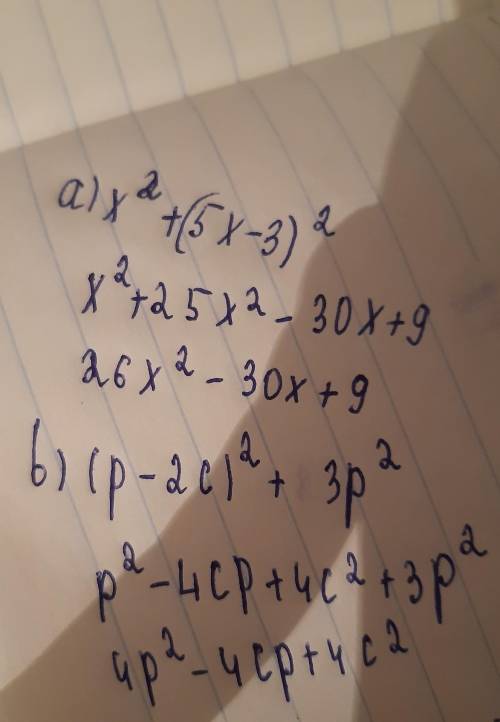 a) x² + (5x-3)²
x² + 25x² - 30x + 9
26x² - 30x + 9
b) (p - 2c)² + 3p²
p² - 4cp + 4c² + 3p²
4p² - 4cp + 4c²